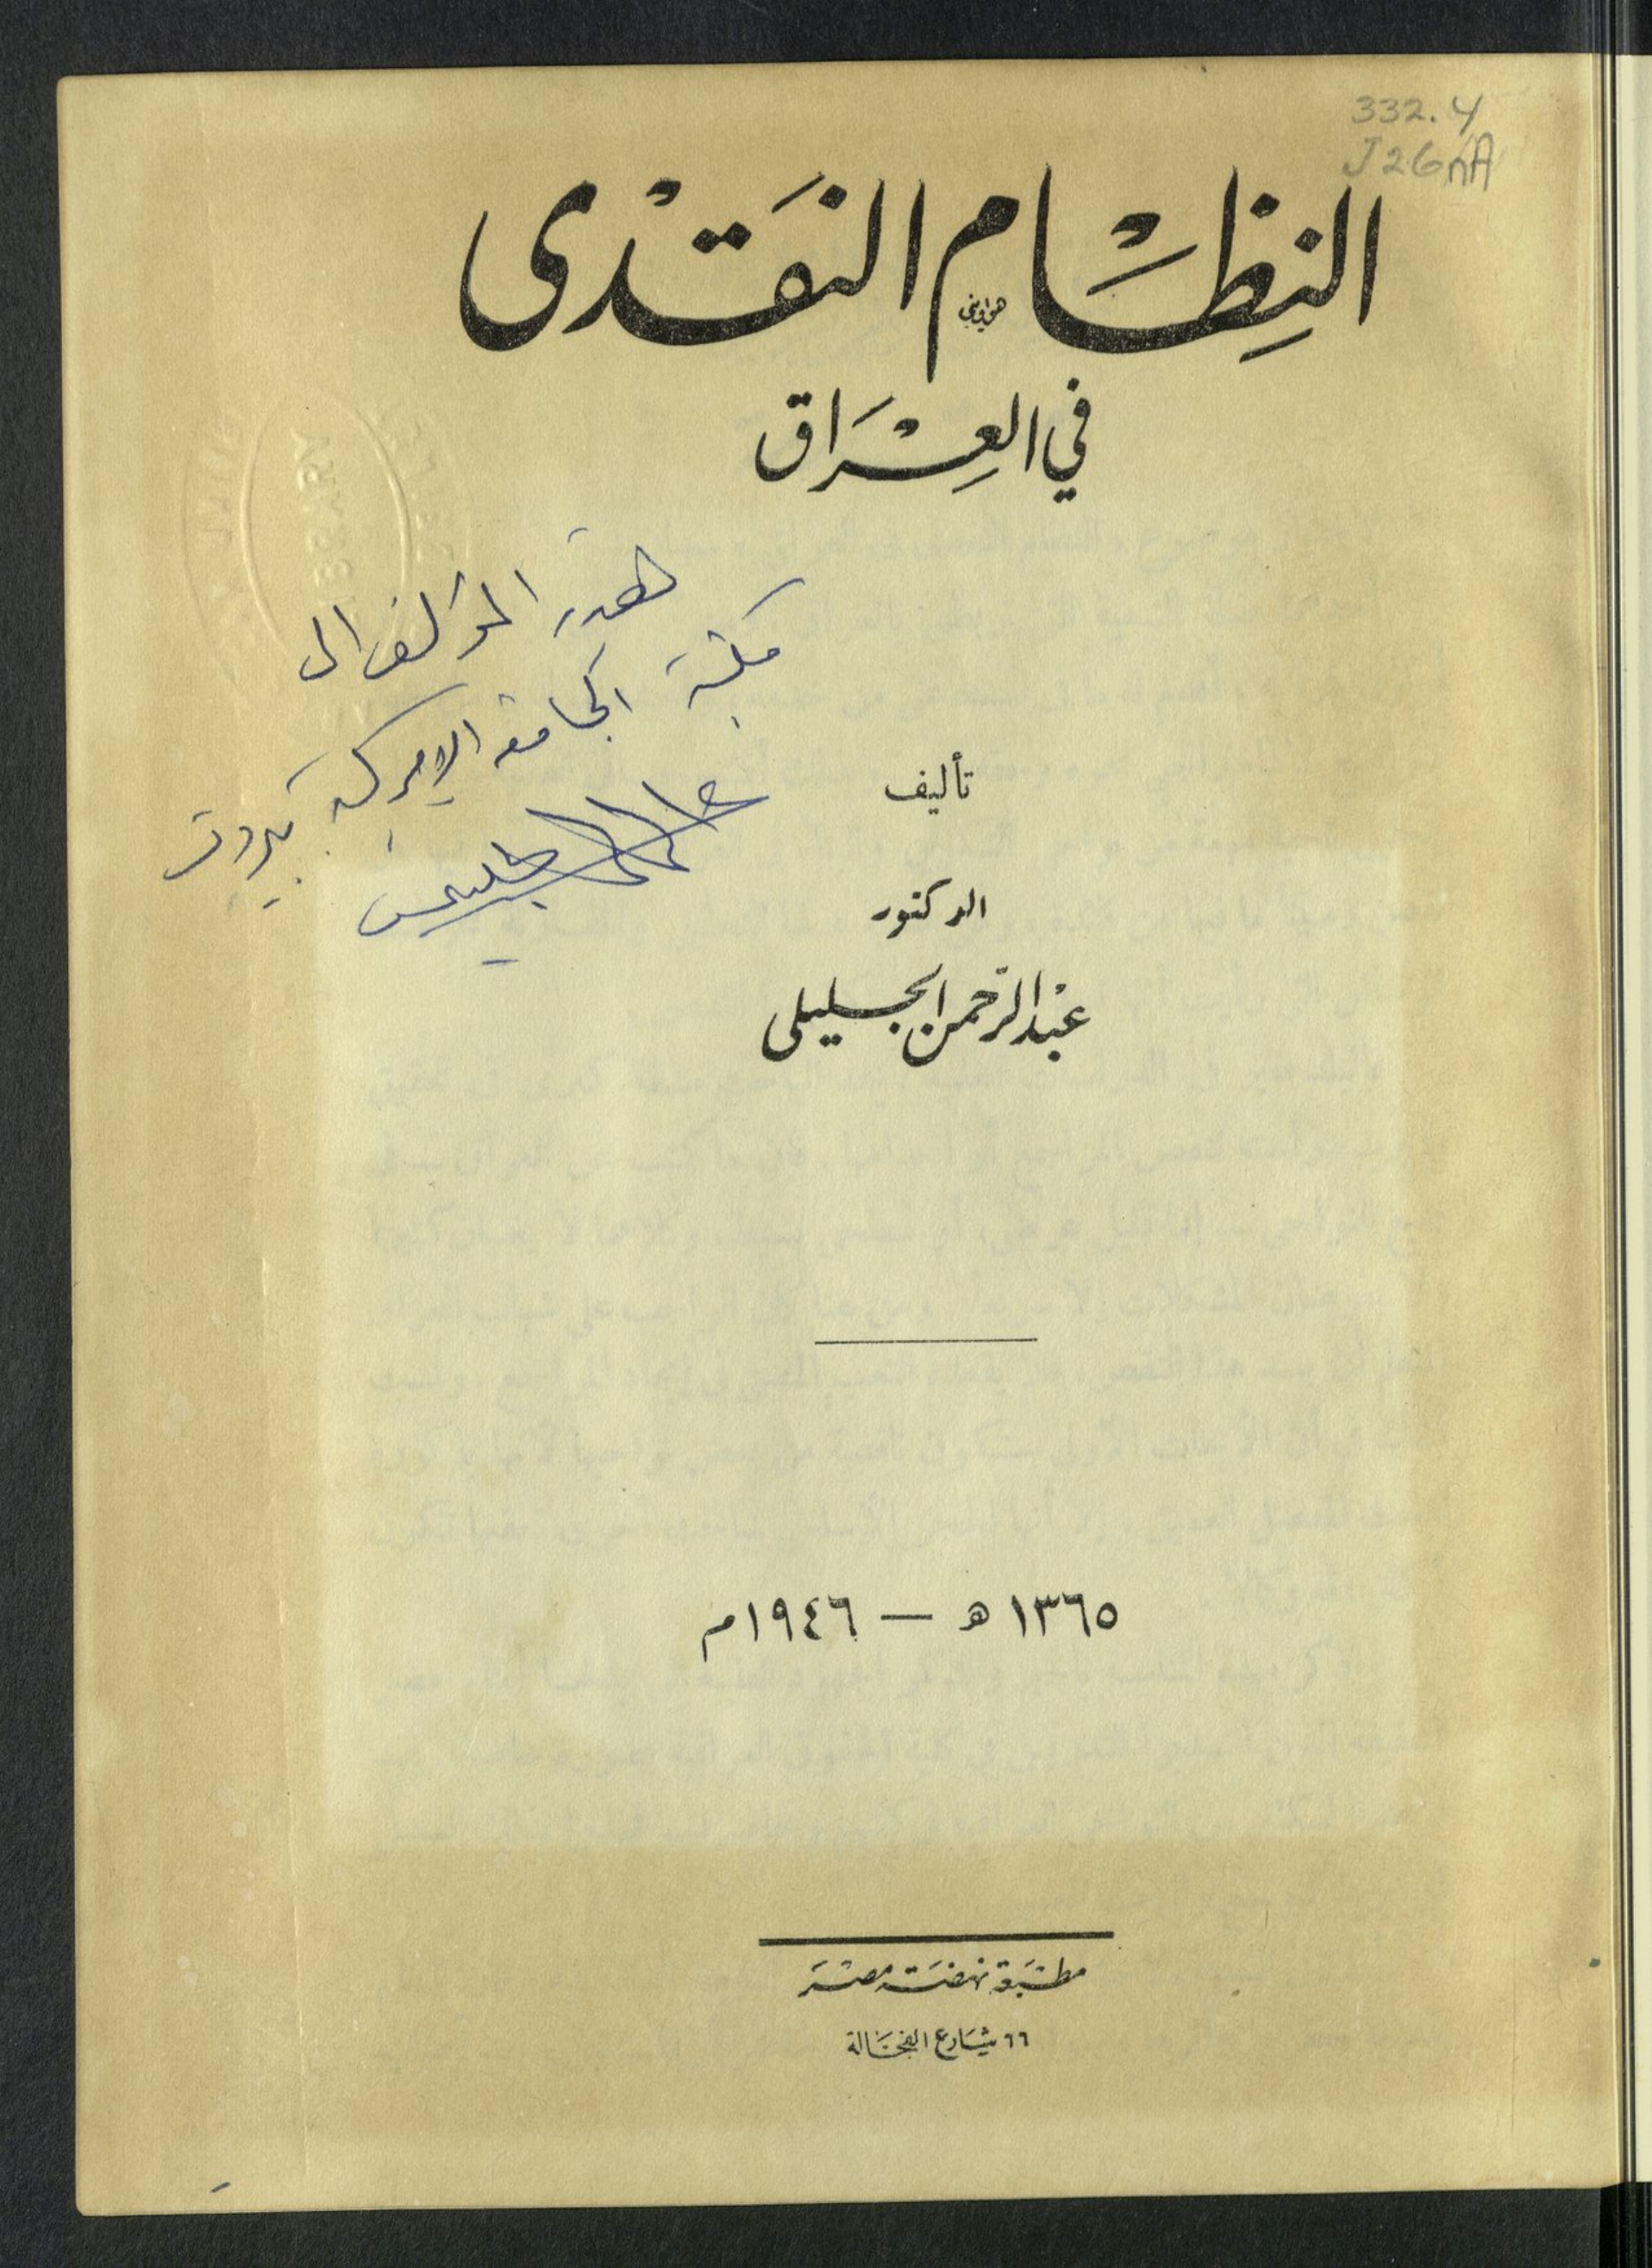 332.4
J26nA
النِظَام النَقدى
في العِرَاق
هدية المؤلف الى
مكتبة الجامعة الاميركية بيروت
الجليلي
تأليف
الدكتور
عبد الرحمن الجليلى
١٣٦٥ ه — ١٩٤٦م
مطبعة نهضة مصر
٦٦ شارع الفجالة